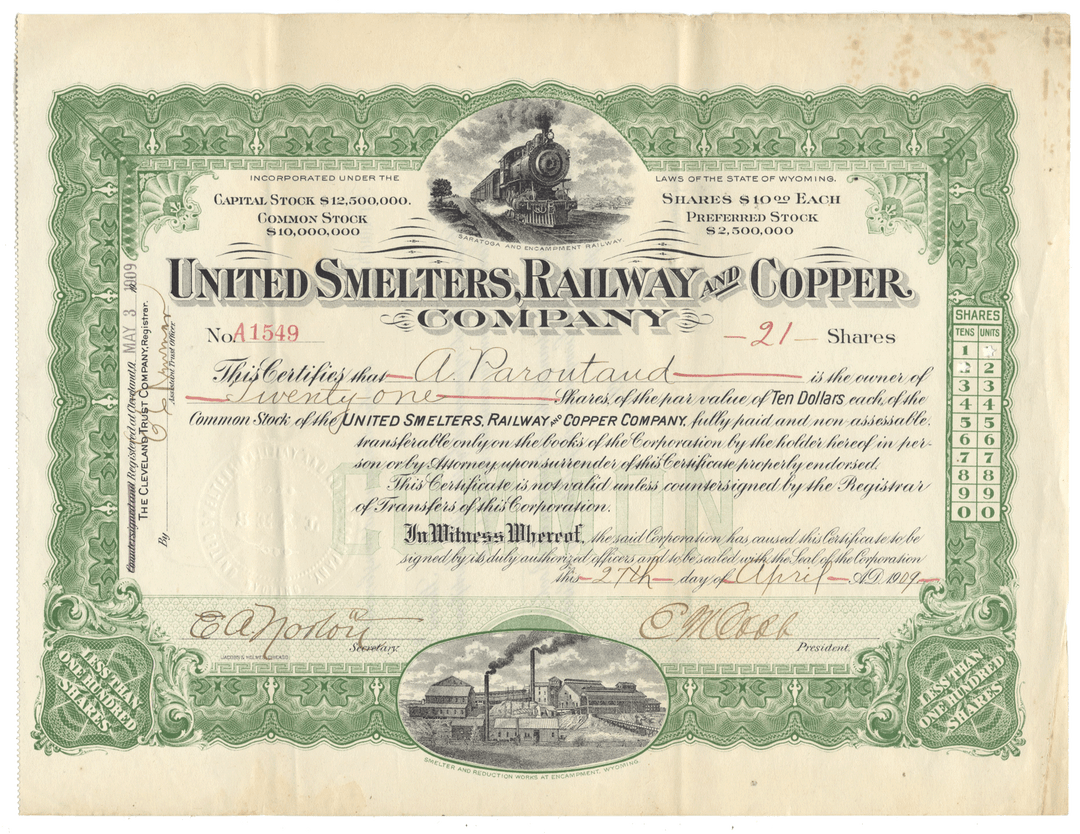 INCORPORATED UNDER THE LAWS OF THE STATE OF WYOMING.
CAPITAL STOCK $12,500,000.
COMMON STOCK
$10,000,000
SHARES $10.00 EACH
PREFERRED STOCK
$2,500,000
SARATOGA AND ENCAMPMENT RAILWAY.
UNITED SMELTERS, RAILWAY AND COPPER
COMPANY
No. A1549
-21- Shares
This Certifies that A. Paroutaud is the owner of
Twenty-one Shares, of the par value of Ten Dollars each, of the
Common Stock of the UNITED SMELTERS, RAILWAY AND COPPER COMPANY, fully paid and non-assessable,
transferable only on the books of the Corporation by the holder hereof in per-
son or by Attorney upon surrender of this Certificate properly endorsed.
This Certificate is not valid unless countersigned by the Registrar
of Transfers of this Corporation.
In Witness Whereof, the said Corporation has caused this Certificate to be
signed by its duly authorized officers and to be sealed with the Seal of the Corporation
this 27th day of April A.D. 1909
COMMON
E A Norton
Secretary.
C M Cobb
President.
SMELTER AND REDUCTION WORKS AT ENCAMPMENT, WYOMING.
LESS THAN
ONE HUNDRED
SHARES
LESS THAN
ONE HUNDRED
SHARES
SHARES
TENS UNITS
1
2 2
3 3
4 4
5 5
6 6
7 7
8 8
9 9
0 0
Countersigned and Registered at Cleveland, O. MAY 3 1909
THE CLEVELAND TRUST COMPANY, Registrar.
By
Assistant Trust Officer